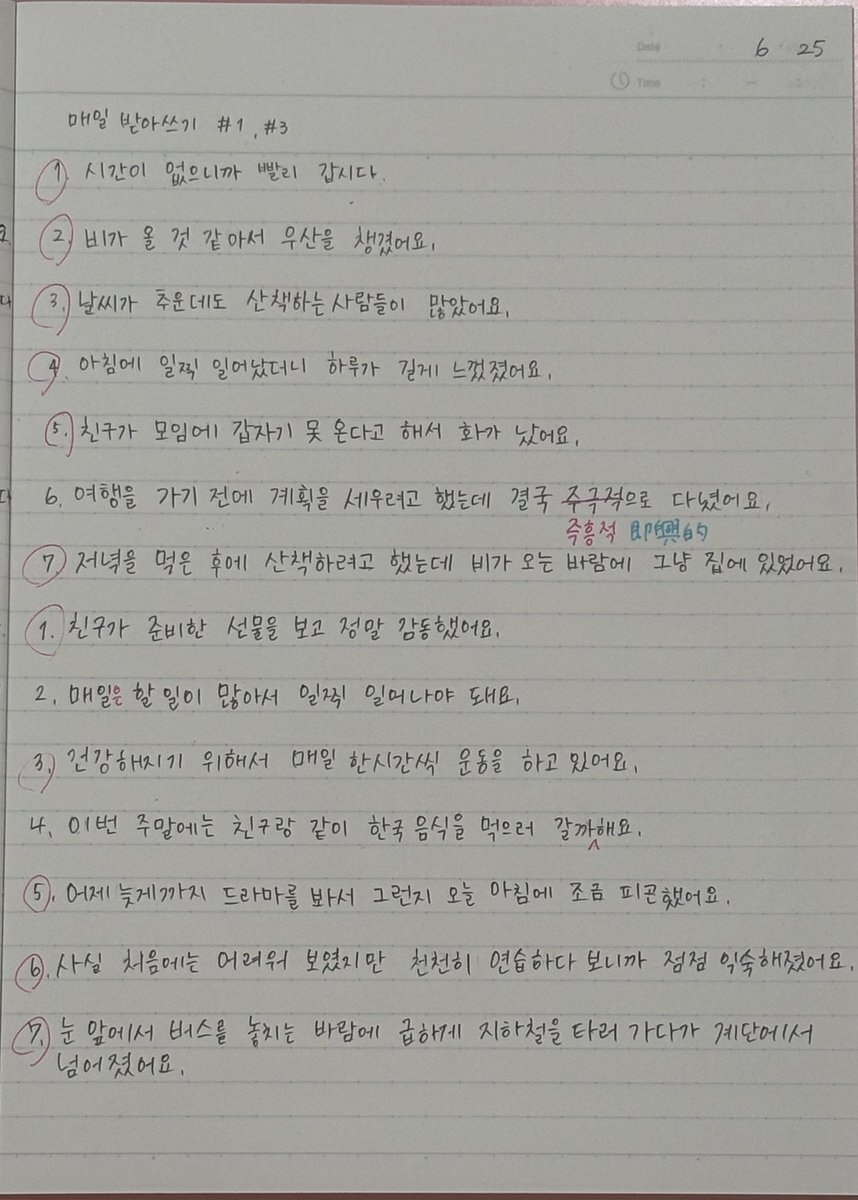 Date 6 25
Time : — :
매일 받아쓰기 #1, #3
1. 시간이 없으니까 빨리 갑시다.
2. 비가 올 것 같아서 우산을 챙겼어요.
3. 날씨가 추운데도 산책하는 사람들이 많았어요.
4. 아침에 일찍 일어났더니 하루가 길게 느껐졌어요.
5. 친구가 모임에 갑자기 못 온다고 해서 화가 났어요.
6. 여행을 가기 전에 계획을 세우려고 했는데 결국 주극적으로 다녔어요.
즉흥적 即興的
7. 저녁을 먹은 후에 산책하려고 했는데 비가 오는 바람에 그냥 집에 있었어요.
1. 친구가 준비한 선물을 보고 정말 감동했어요.
2. 매일은 할 일이 많아서 일찍 일어나야 돼요.
3. 건강해지기 위해서 매일 한시간씩 운동을 하고 있어요.
4. 이번 주말에는 친구랑 같이 한국 음식을 먹으러 갈까해요.
5. 어제 늦게까지 드라마를 봐서 그런지 오늘 아침에 조금 피곤했어요.
6. 사실 처음에는 어려워 보였지만 천천히 연습하다 보니까 점점 익숙해졌어요.
7. 눈 앞에서 버스를 놓치는 바람에 급하게 지하철을 타러 가다가 계단에서
넘어졌어요.